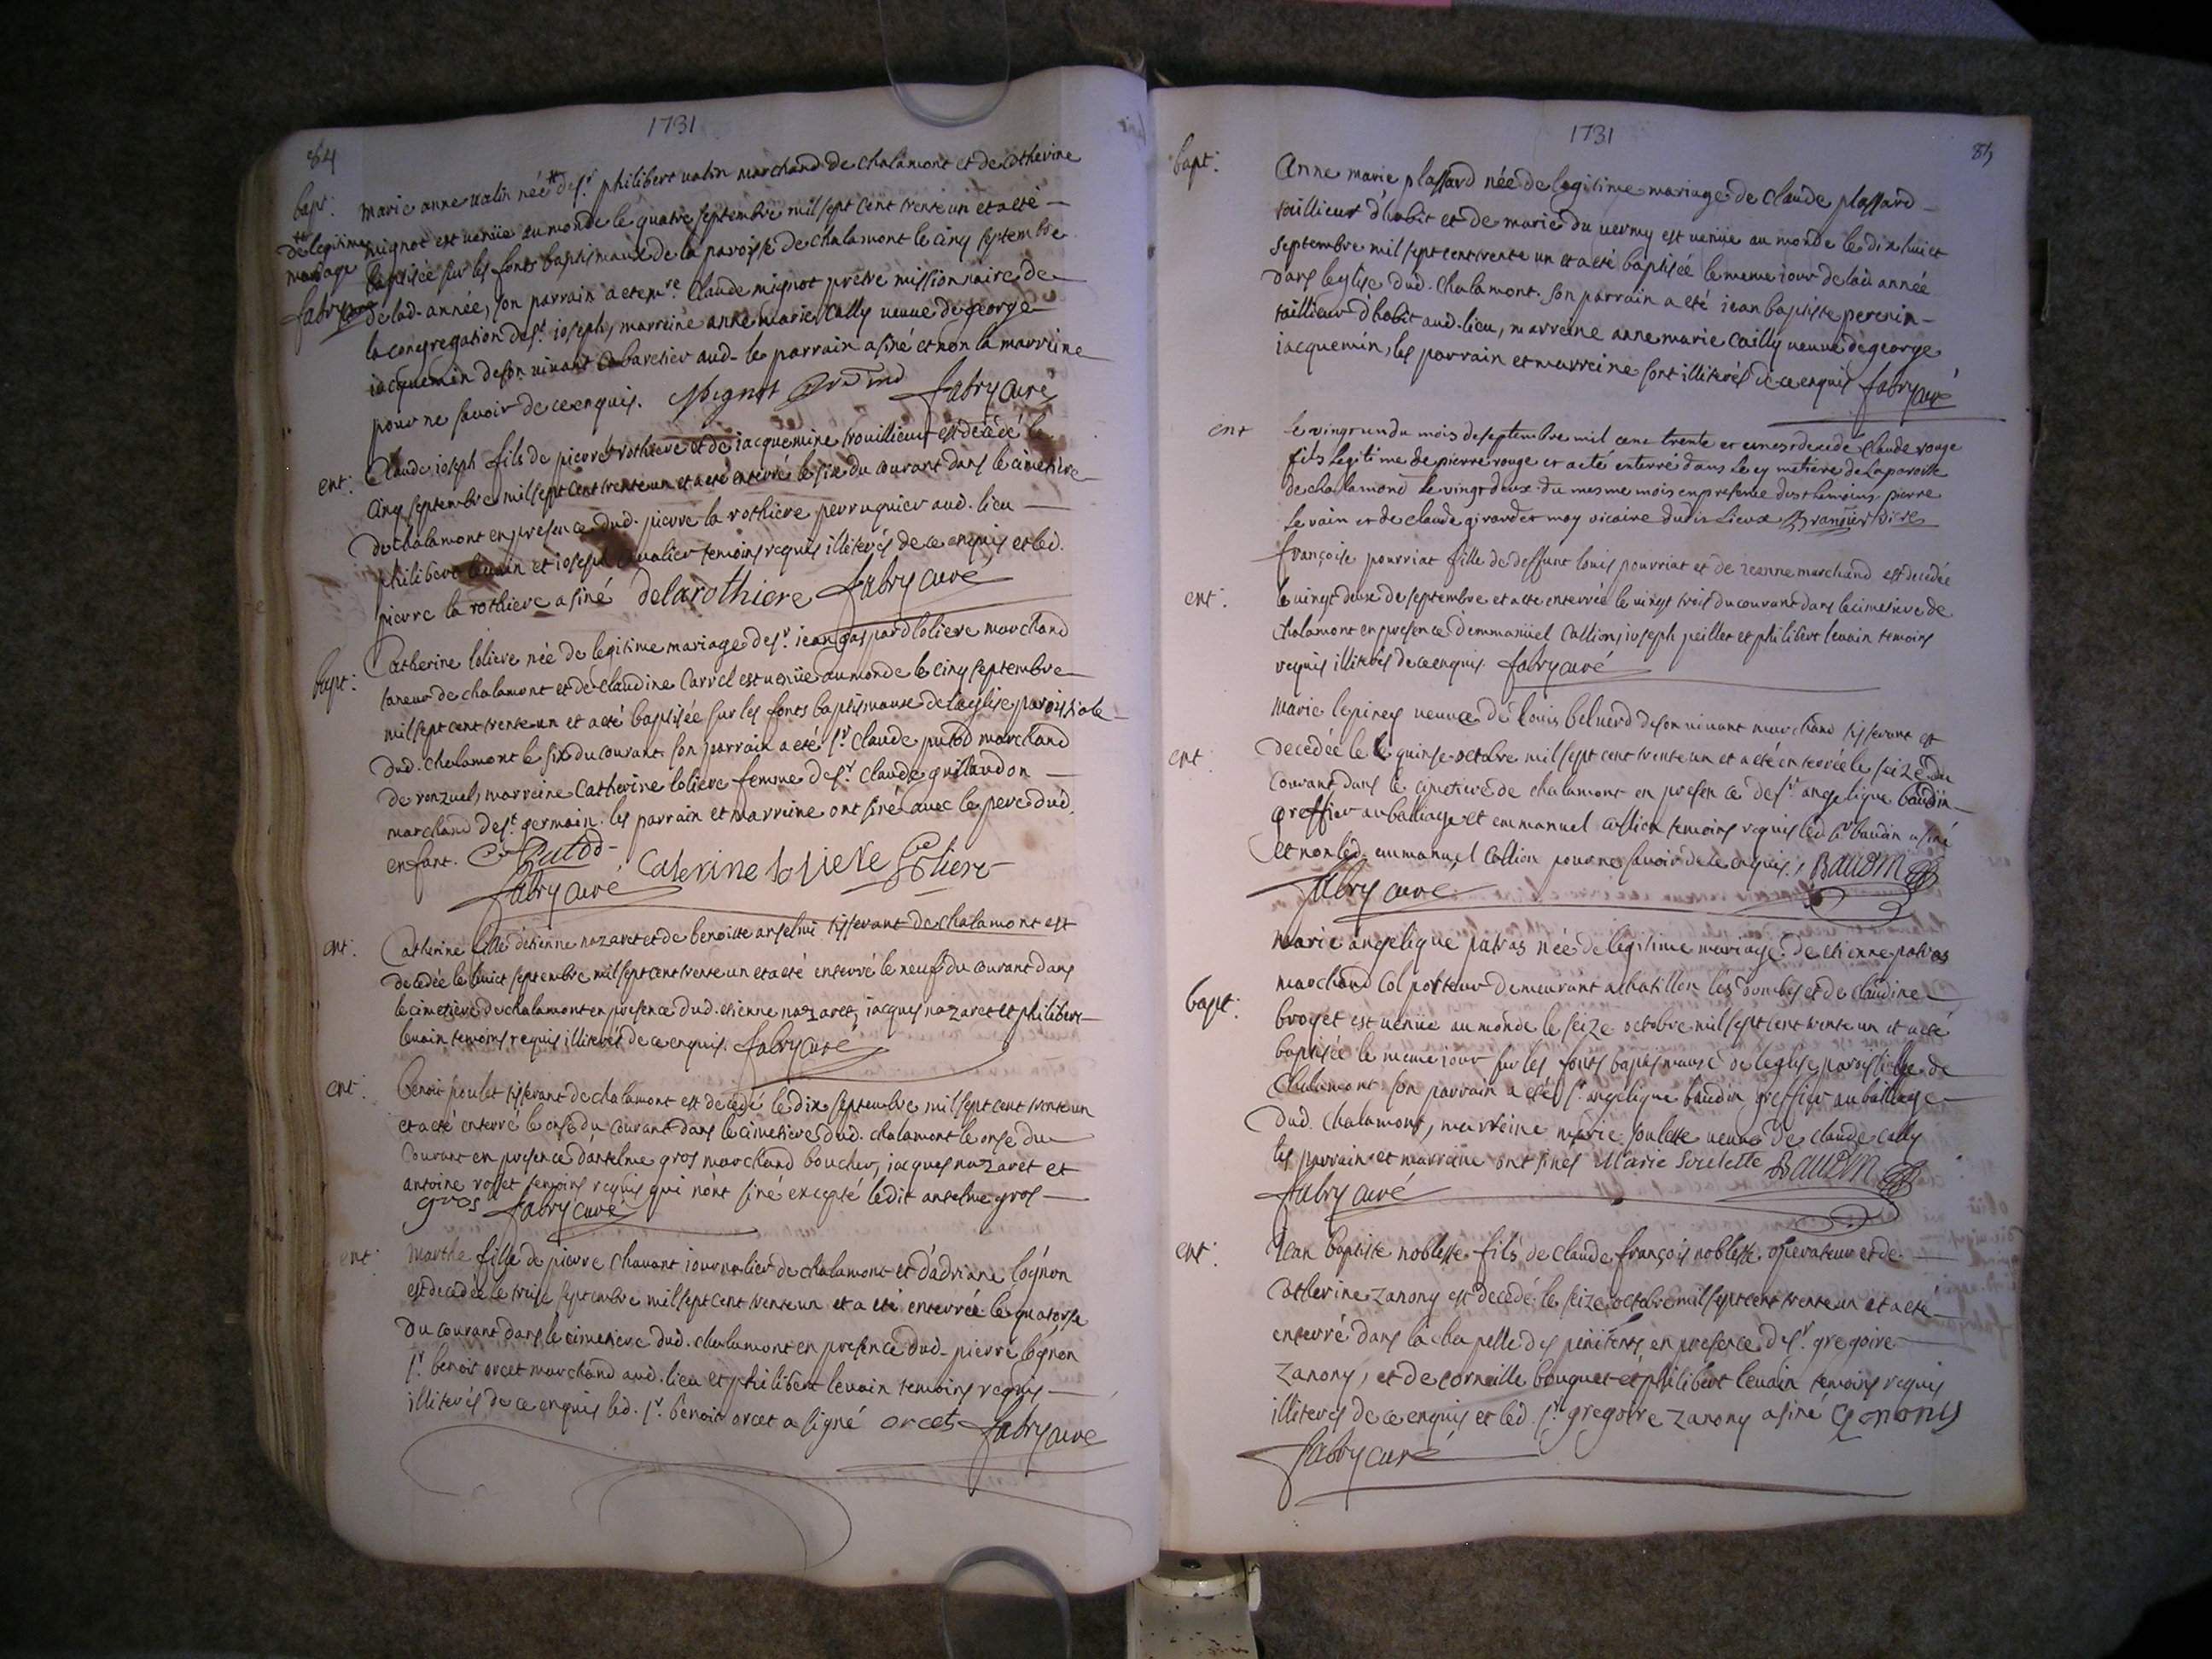 1731
84
bapt:
marie anne valin née ** de sr. philibert valin marchand de chalamont et de catherine
mignot est venüe au monde le quatre septembre mil sept cent trente un et a eté
** de legitime
mariage
fabry curé
baptisée sur les fonts baptismaux de la paroisse de chalamont le cinq septembre
de lad. année, son parrain a eté mre. Claude mignot prêtre missionnaire de
la congregation de st. joseph, marreine anne marie Cally veuve de george
iacquemin de son vivant cabaretier aud- le parrain a siné et non la marreine
pour ne savoir de ce enquis. Mignot fabry curé
ent:
Claude ioseph fils de pierre rothiere et de iacquemine trouillieur est décédé le
cinq septembre mil sept cent trente un et a eté enterré le six du courant dans le cimetiere
de chalamont en presence dud. pierre la rothiere perruquier aud. lieu
philibert levain et ioseph chevalier temoins requis illiterés de ce enquis et led.
pierre la rothiere a siné delarothiere fabry curé
bapt:
Catherine loliere née de legitime mariage de sr. iean gaspard loliere marchand
taneur de chalamont et de Claudine Carrel est venüe au monde le cinq septembre
mil sept cent trente un et a eté baptisée sur les fonts baptismaux de l'eglise paroissiale
dud. chalamont le six du courant son parrain a eté sr. Claude putod marchand
de ronzuel, marreine Catherine loliere femme de sr. Claude guillaudon
marchand de st. germain. les parrain et marreine ont siné avec le pere dud.
enfant. Putod Caterine loliere Loliere
fabry curé
ent:
Catherine fille d'etienne nazaret et de benoitte anselmi tisserant de chalamont est
decedée le huict septembre mil sept cent trente un et a eté enterré le neuf du courant dans
le cimetiere de chalamont en presence dud. etienne nazaret, iacques nazaret et philibert
levain temoins requis illiterés de ce enquis. fabry curé
ent:
benoit poulet tisserant de chalamont est decedé le dix septembre mil sept cent trente un
et a eté enterré le onse du courant dans le cimetiere dud. chalamont le onse du
courant en presence d'antelme gros marchand boucher, iacques nazaret et
antoine rosset temoins requis qui n'ont siné excepté ledit antelme gros
gros fabry curé
ent:
marthe fille de pierre Chavant iournalier de chalamont et d'adriane lognon
est decedée le treise septembre mil sept cent trente un et a eté enterrée le quatorse
du courant dans le cimetiere dud. chalamont en presence dud- pierre lognon
sr. benoit orcet marchand aud. lieu et philibert levain temoins requis
illiterés de ce enquis led. sr. benoit orcet a signé orcet fabry curé
1731
85
bapt:
Anne marie plassard née de legitime mariage de Claude plassard
taillieur d'habit et de marie du vermy est venüe au monde le dix huict
septembre mil sept cent trente un et a eté baptisée le meme iour de lad. année
dans l'eglise dud. Chalamont. son parrain a eté iean baptiste perenin
taillieur d'habit aud. lieu, marreine anne marie cailly veuve de george
iacquemin, les parrain et marreine sont illiterés de ce enquis fabry curé
ent
le vingt un du mois de septembre mil cent trente et un es decede Claude rouge
fils legitime de pierre rouge et a eté enterré dans le cy metiere de la paroisse
de chalamond le vingt deux du mesme mois en presence des themoins pierre
le vain et de claude girard et moy vicaire dudis lieux
ent:
françoise pourriat fille de deffunt louis pourriat et de ieanne marchand est decedée
le vingt deux de septembre et a eté enterrée le vingt trois du courant dans le cimetiere de
Chalamont en presence d'emmanüel Collion, ioseph peillet et philibert levain temoins
requis illiterés de ce enquis. fabry curé
ent:
Marie lepiney veuve de louis beluerd de son vivant marchand tisserant est
decedée le quinse octobre mil sept cent trente un et a eté enterrée le seize du
courant dans le cimetiere de chalamont en presence de sr. angelique baudin
greffier au balliage et emmanuel Collion temoins requis led. sr. baudin a siné
et non led. emmanuel Collion pour ne savoir de ce enquis. Baudin
fabry curé
bapt:
Marie angelique patras née de legitime mariage de etienne patras
marchand Colporteur demeurant a chatillon les dombes et de claudine
broyet est venüe au monde le seize octobre mil sept cent trente un et a eté
baptisée le meme iour sur les fonts baptismaux de l'eglise paroissialle de
Chalamont son parrain a eté sr. angelique baudin greffier au balliage
dud. Chalamont, marreine marie soulette veuve de claude cally
les parrain et marraine ont sinés Marie Soulette Baudin
fabry curé
ent:
Iean baptiste noblesse fils de claude françois noblesse operateur et de
Catherine zanony est decedé le seize octobre mil sept cent trente un et a eté
enterré dans la chapelle des penitents en presence de sr. gregoire
zanony, et de corneille bouquet et philibert levain temoins requis
illiterés de ce enquis et led. sr. gregoire zanony a siné
fabry curé